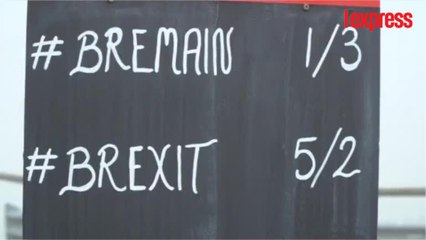 l'express
#BREMAIN 1/3
#BREXIT 5/2